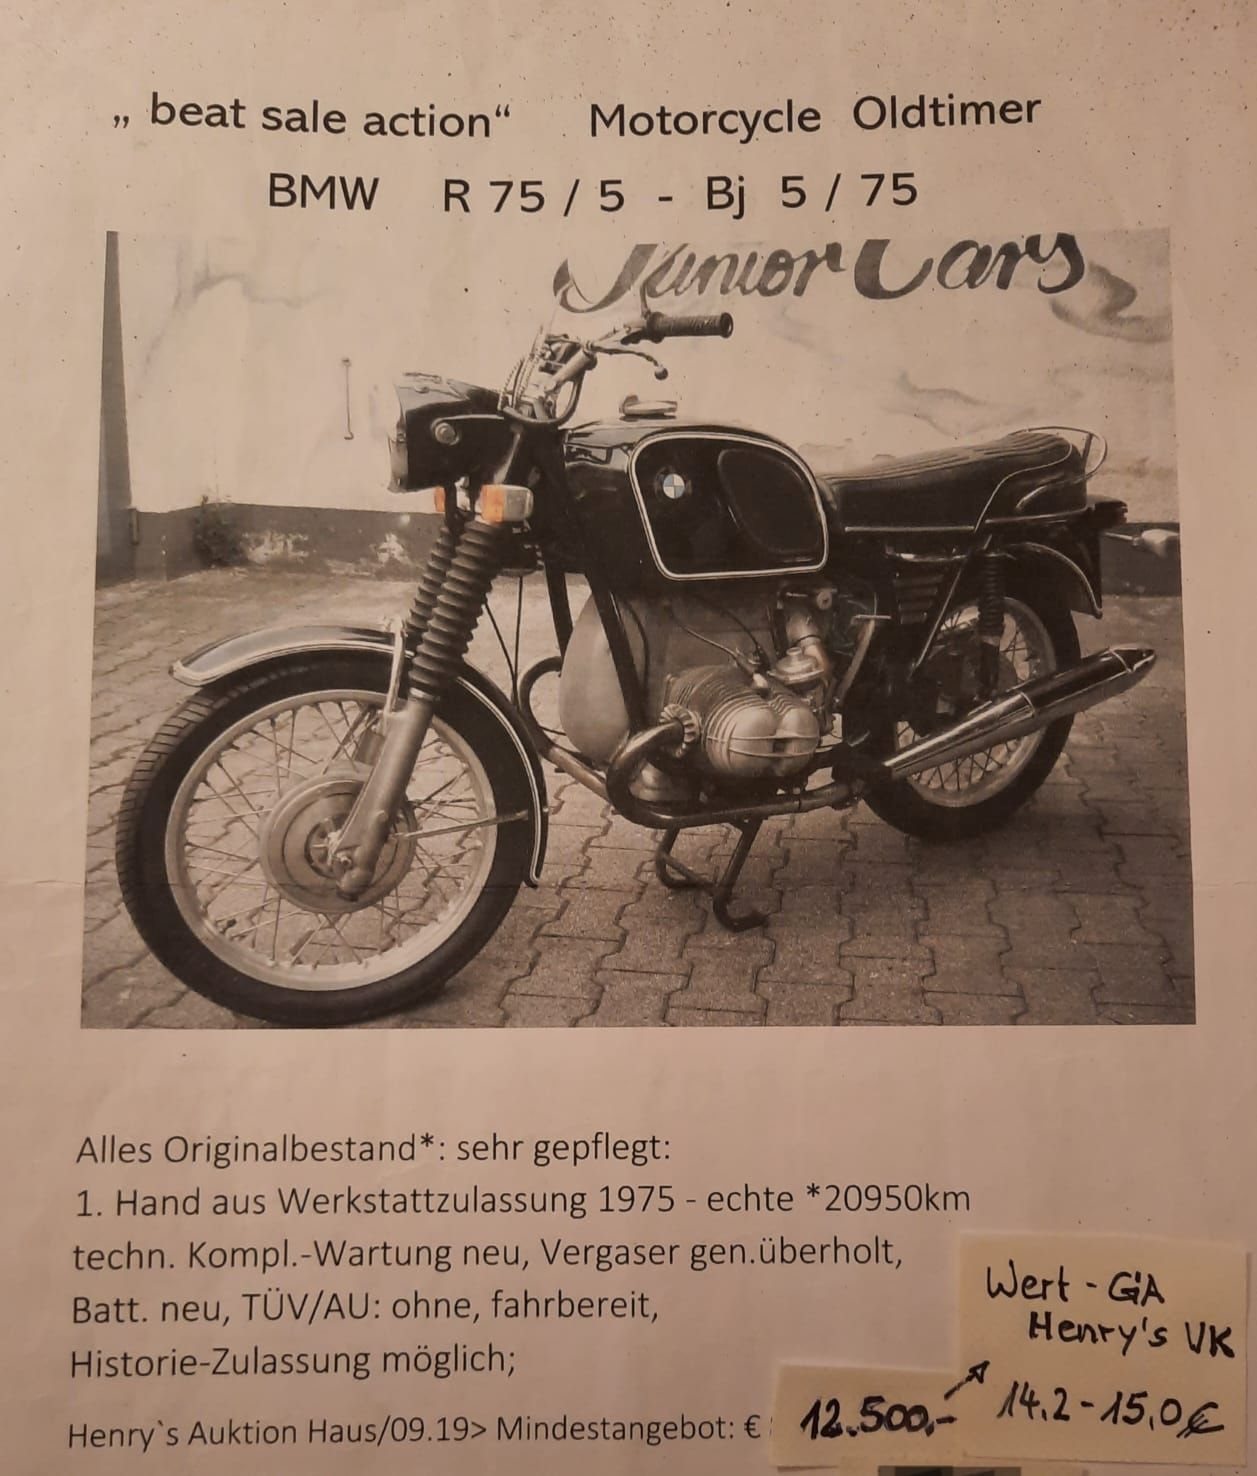 „ beat sale action“ Motorcycle Oldtimer
BMW R 75 / 5 - Bj 5 / 75
Junior Cars
Alles Originalbestand*: sehr gepflegt:
1. Hand aus Werkstattzulassung 1975 - echte *20950km
techn. Kompl.-Wartung neu, Vergaser gen.überholt,
Batt. neu, TÜV/AU: ohne, fahrbereit,
Historie-Zulassung möglich;
Henry`s Auktion Haus/09.19> Mindestangebot: €
12.500,-
Wert - GA
Henry's VK
14.2 - 15,0 €